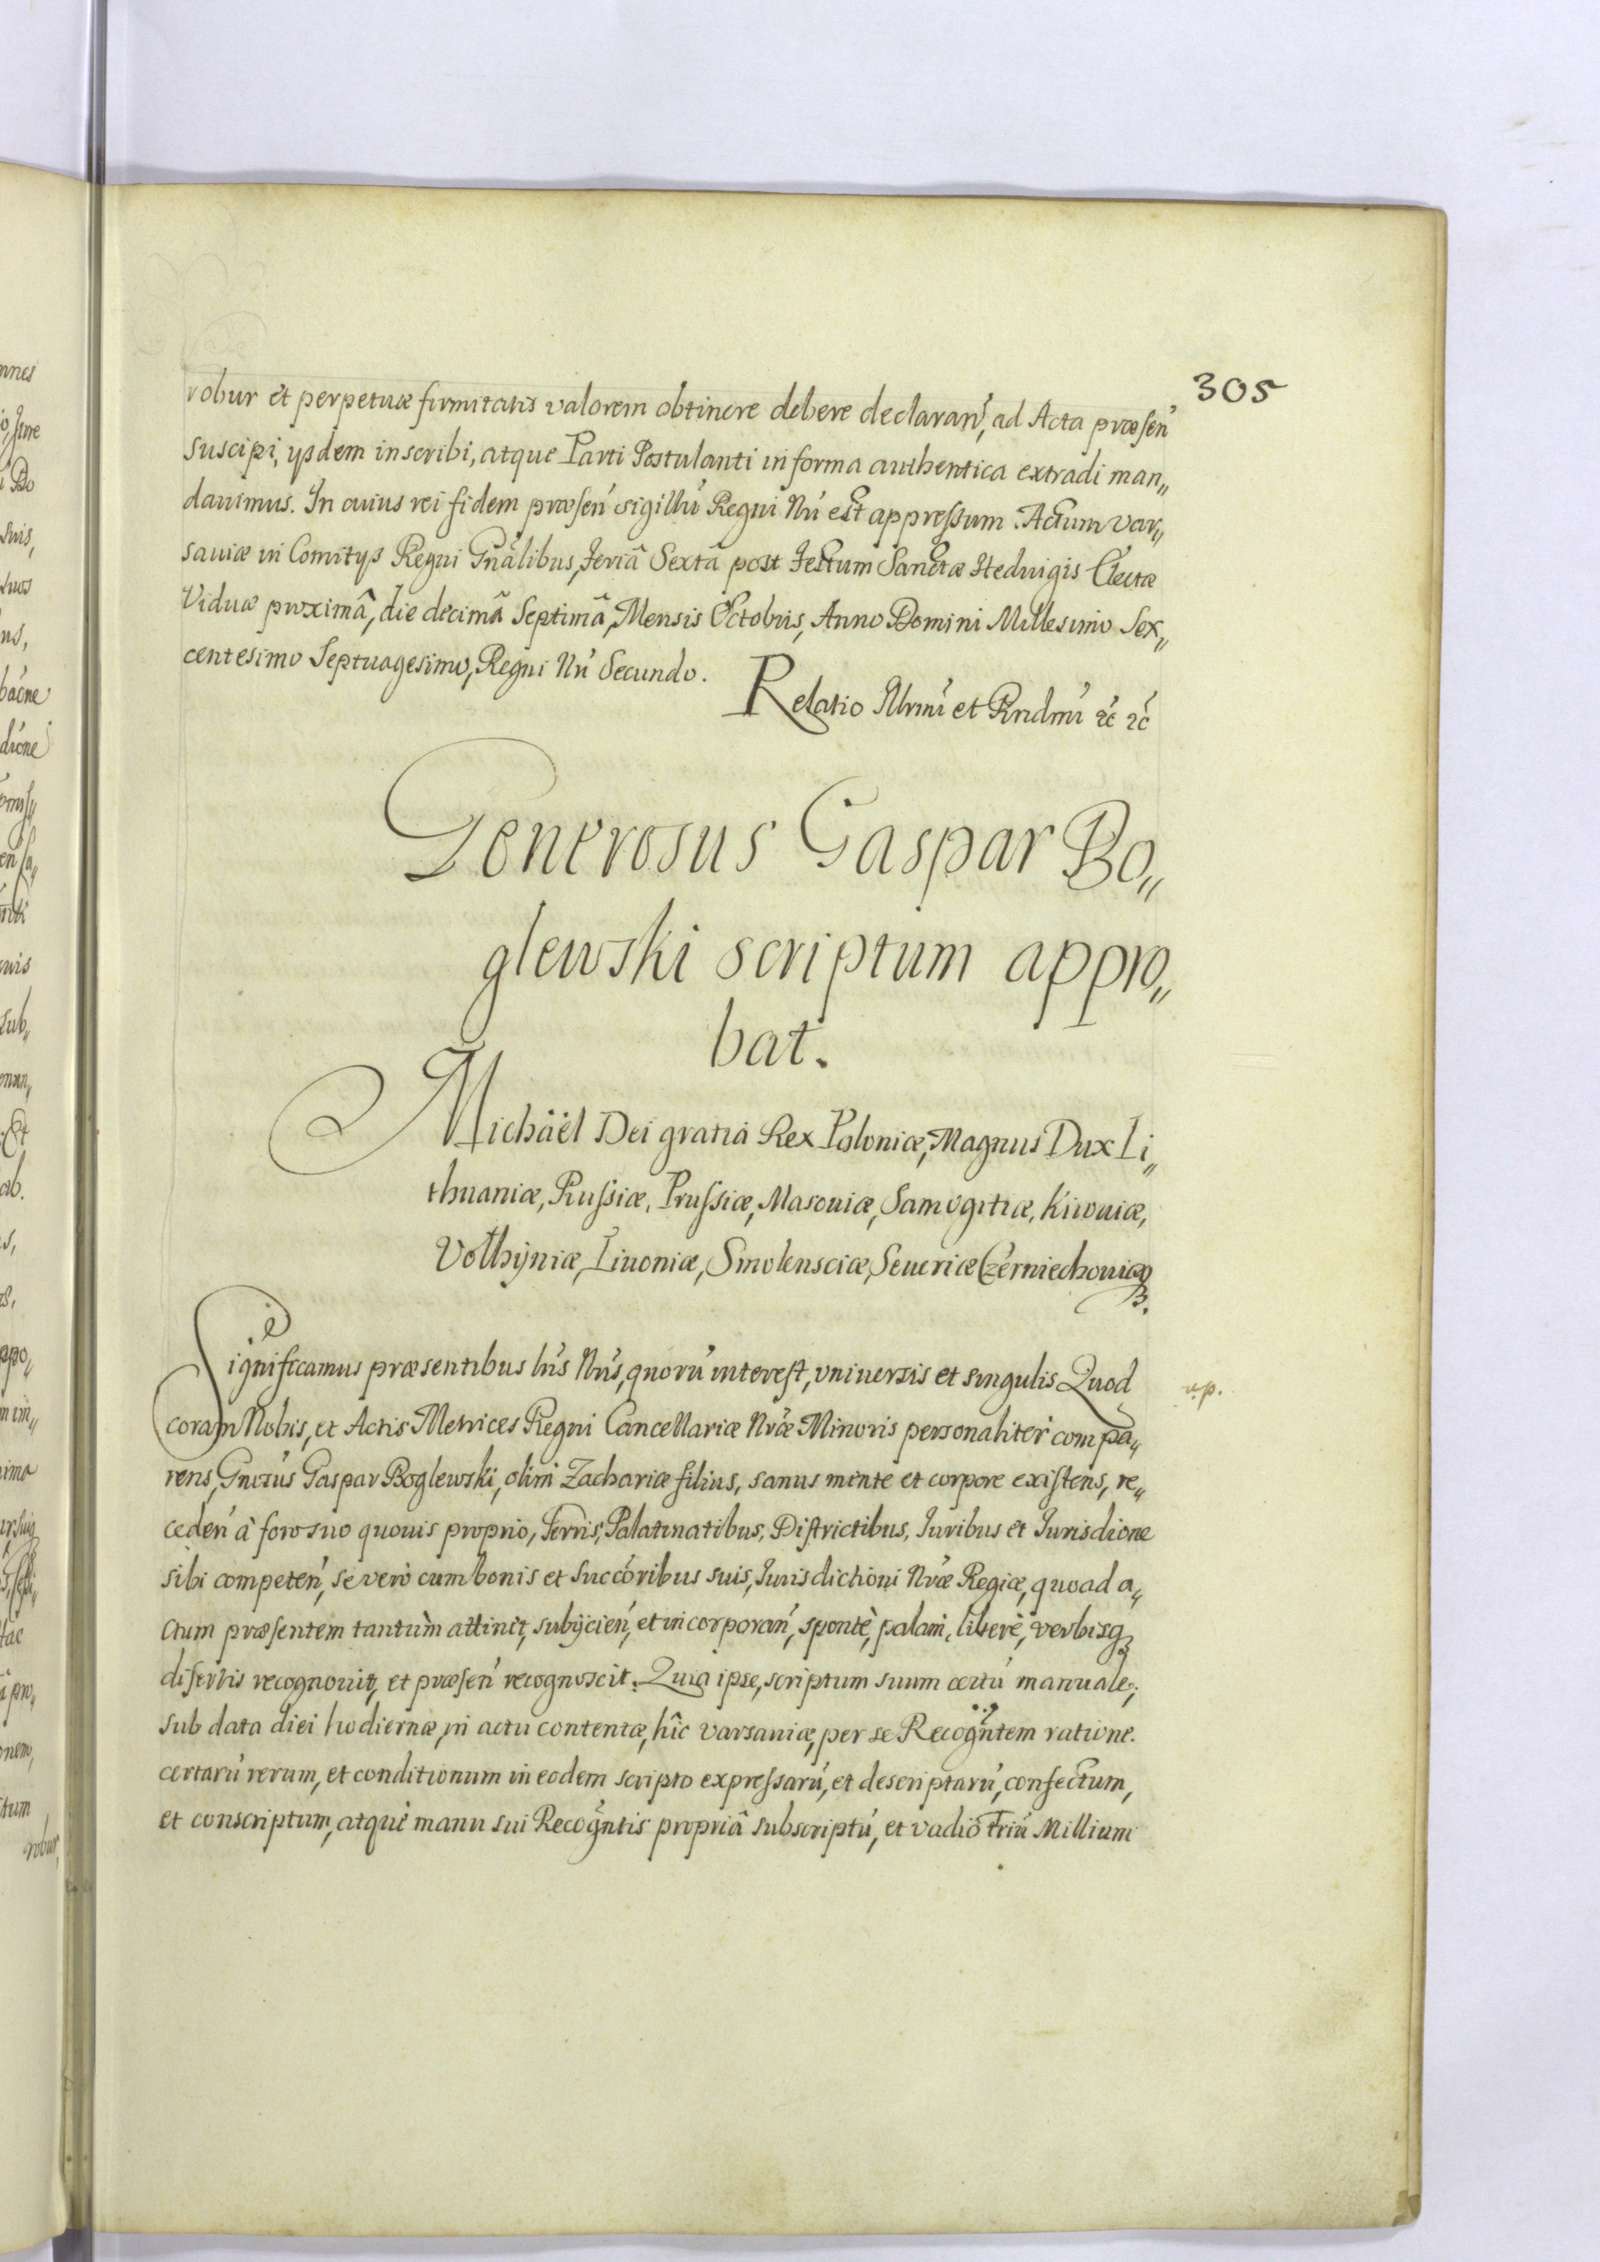 305
robur et perpetuæ firmitatis valorem obtinere debere declaran̄, ad Acta præsen̄
suscipi, ysdem inscribi, atque Parti Postulanti in forma authentica extradi man„
dauimus. In cuius rei fidem præsen̄ sigillū Regni Nr̄i est appressum. Actum Var„
sauiæ in Comitijs Regni Gn̄alibus, Feriâ Sextâ post Festum Sanctæ Heduigis Electæ
Viduæ proximâ, die decimâ Septimâ, Mensis Octobris, Anno Domini Millesimo Sex„
centesimo Septuagesimo, Regni Nr̄i Secundo.
Relatio Illrmi et Rndmi &c &c
Generosus Gaspar Bo„
glewski scriptum appro„
bat.
Michäel Dei gratiâ Rex Poloniæ, Magnus Dux Li„
thuaniæ, Russiæ, Prussiæ, Masouiæ, Samogitiæ, Kiiouiæ,
Volhyniæ, Liuoniæ, Smolensciæ, Seueriæ Czerniechouiæq3.
Significamus præsentibus lr̄is Nr̄is, quorū interest, vniuersis et singulis Quod
v.p.
coram Nobis, et Actis Metrices Regni Cancellariæ Nr̄æ Minoris personaliter compa„
rens, Gn̄osus Gaspar Boglewski, olim Zachariæ filius, sanus mente et corpore existens, re„
ceden̄ à foro suo quouis proprio, Terris, Palatinatibus, Districtibus, Iuribus et Iurisdīone
sibi competen̄, se verò cum bonis et Succōribus suis, Iurisdictioni Nr̄æ Regiæ, quoad a„
ctum præsentem tantùm attinet, subijcien̄, et incorporan̄, spontè, palam, liberè, verbisq3
disertis recognouit, et præsen̄ recognoscit. Quia ipse, scriptum suum certū manuale,
sub data diei hodiernæ, in actu contentæ, hîc Varsauiæ, per se Recogn̄tem ratione
certarū rerum, et conditionum in eodem scripto expressarū, et descriptarū, confectum,
et conscriptum, atquè manu sui Recogn̄tis propriâ subscriptū, et vadiō Triū Millium